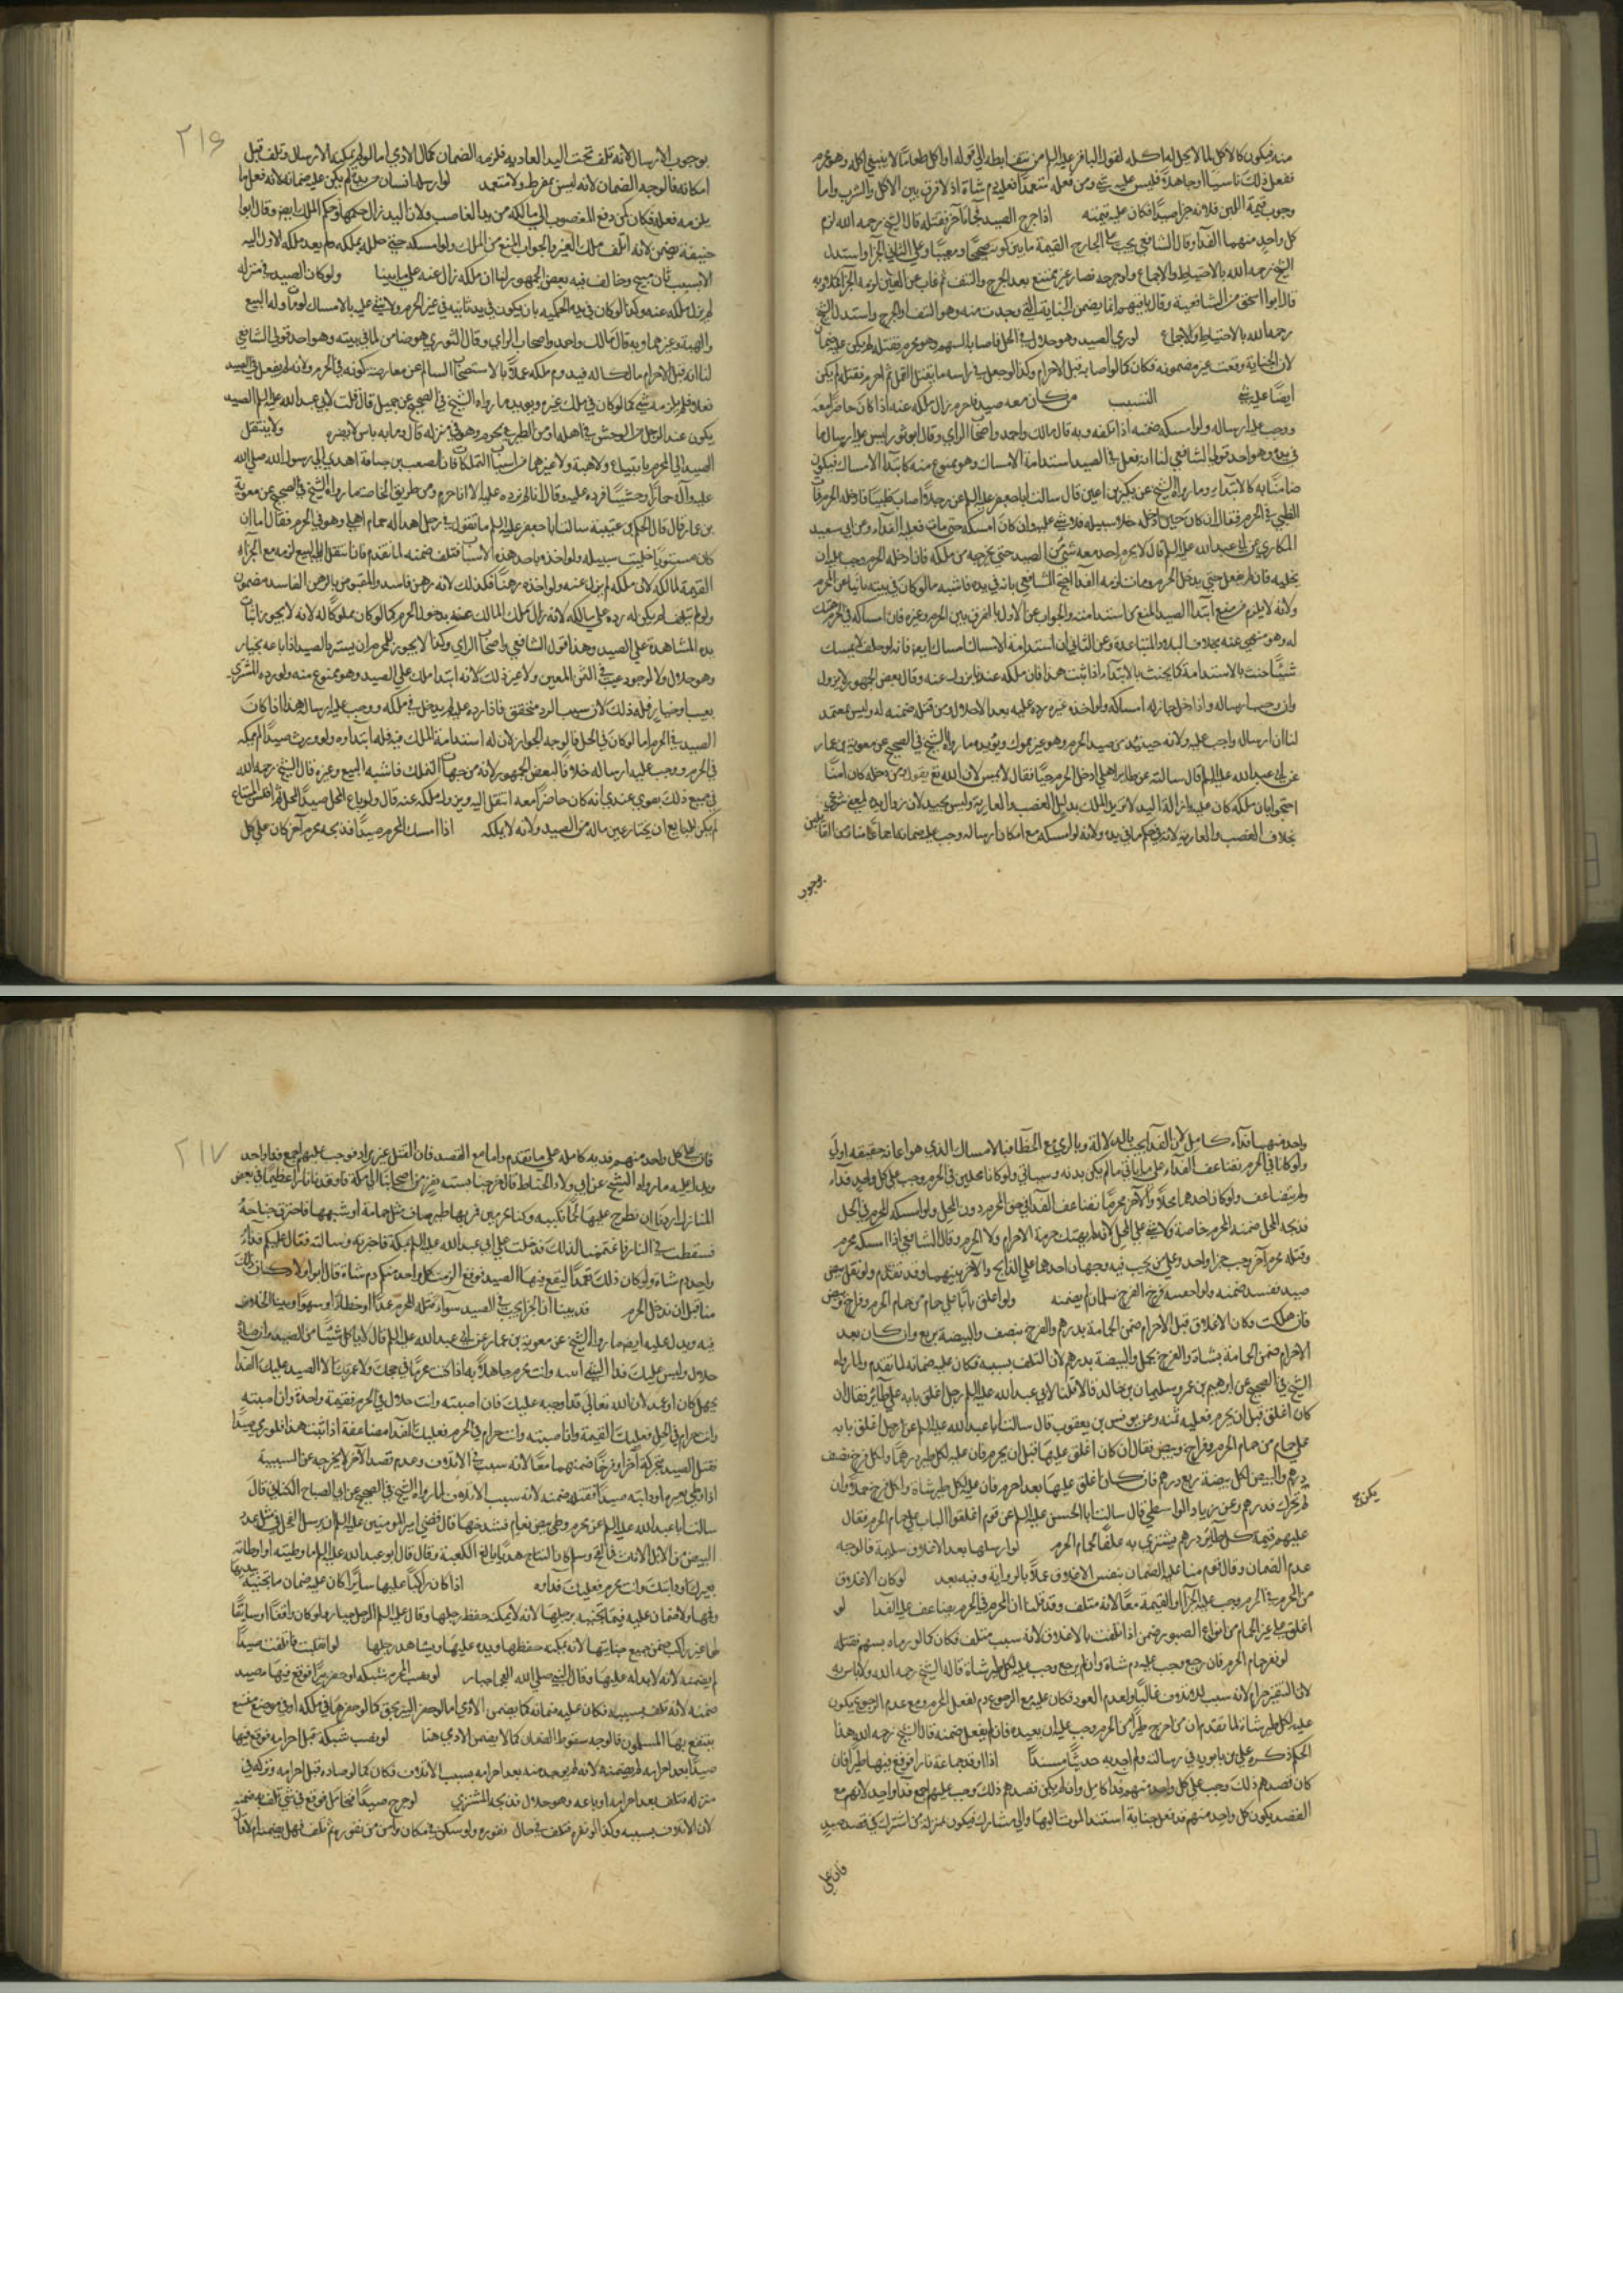 منه فيكون كالاكل لما لا يحل له اكله لقول الباقر عليه السلم من نتف ابطه الى قوله او اكل طعاما لا ينبغي اكله وهو محرم
ففعل ذلك ناسيا او جاهلا فليس عليه شي ومن فعله متعمدا فعليه دم شاة اذ لا فرق بين الاكل والشرب واما
وجوب قيمة اللبن فلانه جزا صيد فكان عليه قيمته اذا جرح الصيد ثم جاء آخر فقتله قال الشيخ رحمه الله لزم
كل واحد منهما الفدا وقال الشافعي يجب على الجارح القيمة ما بين كونه صحيحا ومعيبا وعلى الثاني الجزا واستدل
الشيخ رحمه الله بالاحتياط والاجماع ولو جرحه فصار غير ممتنع بعد الجرح والنتف ثم غاب عن العين لزمه الجزا كملا وبه
قال ابو اسحق من الشافعية وقال باقيهم انما يضمن الجناية التي وجدت منه وهو النتف او الجرح واستدل الشيخ
رحمه الله بالاحتياط والاجماع لو رمى الصيد وهو حلال في الحل فاصابه السهم وهو محرم فقتله لم يكن عليه ضمان
لان الجناية وقعت غير مضمونه فكان كما لو اصابه قبل الاحرام وكذا لو جعل في راسه ما يقتل القمل ثم احرم فقتله لم يكن
ايضا عليه شي التسبيب من كان معه صيد فاحرم زال ملكه عنه اذا كان حاضرا معه
ووجب عليه ارساله ولو امسكه ضمنه اذا تلفه وبه قال مالك واحمد واصحاب الراي وقال ابو ثور ليس عليه ارسال ما
في يده وهو احد قولي الشافعي لنا انه فعل في الصيد استدامة الامساك وهو ممنوع منه كابتدا الامساك فيكون
ضامنا به كالابتداء وما رواه الشيخ عن بكير بن اعين قال سالت ابا جعفر عليه السلم عن رجل اصاب ظبيا فادخله الحرم فمات
الظبي في الحرم فقال ان كان حين ادخله خلا سبيله فلا شي عليه وان كان امسكه حتى مات فعليه الفداء وعن ابي سعيد
المكاري عن ابي عبد الله عليه السلم قال لا يحرم احد معه شي من الصيد حتى يخرجه من ملكه فان ادخله الحرم وجب عليه ان
يخليه فان لم يفعل حتى يدخل الحرم ومات لزمه الفدا احتج الشافعي بانه في يده فاشبه ما لو كان في بيته نائيا عن الحرم
ولانه لا يلزم من منع ابتدا الصيد المنع من استدامته والجواب عن الاول بالفرق بين الحرم وغيره فان امساكه في الحرم هتك
له وهو منهي عنه بخلاف البلد والمتباعدة وعن الثاني ان استدامة الامساك امساك ايضا فانه لو حلف لا يمسك
شيئا حنث بالاستدامة كما يحنث بالابتداء اذا ثبت هذا فان ملكه عندنا يزول عنه وقال بعض الجمهور لا يزول
وان وجب ارساله واذا دخل جاز له امساكه ولو اخذه غيره رده عليه بعد الاحلال ومن قتله ضمنه له وليس بمعتمد
لنا ان ارساله واجب عليه ولانه حينئذ من صيد الحرم وهو غير مملوك ويؤيده ما رواه الشيخ في الصحيح عن معوية بن عمار
عن ابي عبد الله عليه السلم قال سالته عن طاير اهلي ادخل الحرم حيا فقال لا يمس لان الله تع يقول ومن دخله كان امنا
احتجوا بان ملكه كان عليه وازالة اليد لا تزيل الملك بدليل الغصب والعارية وليس بجيد لان زوال يده لمعنى شرعي
بخلاف الغصب والعارية لانه في حكم ما في يده ولانه لو امسكه مع امكان ارساله وجب عليه ضمانه اجماعا منا ومن القايلين
بوجوب
٢١٦
بوجوب الارسال لانه تلف تحت اليد العادية فلزمه الضمان كمال الادمي اما لو لم يمكنه الارسال وتلف قبل
امكانه فالوجه الضمان لانه ليس بمفرط ولا متعد لو ارسله انسان من يده لم يكن عليه ضمانه لانه فعل ما
يلزمه فعله فكان كمن دفع المغصوب الى مالكه من يد الغاصب ولان اليد زال حكمها وحكم الملك ايضا وقال ابو
حنيفة يضمن لانه اتلف ملك الغير والجواب المنع من الملك ولو امسكه حتى حل له بملكه لم يعد ملكه الاول اليه
الا بسبب ثان مبيح وخالف فيه بعض الجمهور لنا ان ملكه زال عنه على ما بينا ولو كان الصيد في منزله
لم يزل ملكه عنه وكذا لو كان في يده الحكمية بان يكون في يد نائبه في غير الحرم ولا شي عليه بالامساك لو مات وله البيع
والهبة وغيرهما وبه قال مالك واحمد واصحاب الراي وقال الثوري هو ضامن لما في بيته وهو احد قولي الشافعي
لنا انه قبل الاحرام مالك له فيدوم ملكه عملا بالاستصحاب السالم عن معارضة كونه في الحرم ولانه لم يفعل في الصيد
فعلا فلم يلزمه شي كما لو كان في ملك غيره ويويده ما رواه الشيخ في الصحيح عن جميل قال قلت لابي عبد الله عليه السلم الصيد
يكون عند الرجل من الوحش في اهله او من الطير يحرم وهو في منزله قال وما به باس لا يضره ولا ينتقل
الصيد الى المحرم بابتياع ولا هبة ولا غيرهما من اسباب التملكات فان الصعب بن جثامة اهدى الى رسول الله صلى الله
عليه وآله حمارا وحشيا فرده عليه وقال انا لم نرده عليك الا انا حرم ومن طريق الخاصة ما رواه الشيخ في الصحيح عن معوية
بن عمار قال قال الحكم بن عتيبة سالت ابا جعفر عليه السلم ما تقول في رجل اهدى له حمام اهلي وهو في الحرم فقال اما ان
كان مستويا خليت سبيله ولو اخذه باحد هذه الاسباب فتلف ضمنه لما تقدم فان انتقل اليه بالبيع لزمه مع الجزاء
القيمة لمالكه لان ملكه لم يزل عنه ولو اخذه رهنا فكذلك لانه رهن فاسد والمقبوض بالرهن الفاسد مضمون
ولو لم يتلف لم يكن له رده على مالكه لانه زال ملك المالك عنه بدخول الحرم كما لو كان مملوكا له لانه لا يجوز اثبات
يده المشاهدة على الصيد وهذا قول الشافعي واصحاب الراي وكذا لا يجوز للمحرم ان يسترد الصيد اذا باعه بخيار
وهو حلال ولا لوجود عيب في الثمن المعين ولا غير ذلك لانه ابتدا ملك على الصيد وهو ممنوع منه ولو رده المشتري
بعيب او خيار فله ذلك لان سبب الرد متحقق فاذا رده عليه لم يدخل في ملكه ووجب عليه ارساله هذا اذا كان
الصيد في الحرم اما لو كان في الحل فالوجه الجواز لان له استدامة الملك فيه فله ابتداوه ولو ورث صيدا لم يملكه
في الحرم ووجب عليه ارساله خلافا لبعض الجمهور لانه من جهات التملك فاشبه البيع وغيره قال الشيخ رحمه الله
في جميع ذلك يقوى عندي انه كان حاضرا معه انتقل اليه ويزول ملكه عنه قال ولو باع المحل صيدا لمحل ثم افلس المبتاع
لم يكن للبايع ان يختار عين ماله من الصيد ولانه لا يملكه اذا امسك المحرم صيدا فذبحه محرم آخر كان على كل
واحد منهما فداء كامل لان الفدا يجب بالدلالة وبالرمي مع الخطا فبالامساك الذي هو اعانة حقيقة اولى
ولو كانا في الحرم تضاعف الفداء على ما ياتي ما لم يكن بدنه وسياتي ولو كانا محلين في الحرم وجب على كل واحد فداء
ولم يتضاعف ولو كان احدهما محلا والآخر محرما تضاعف الفدا في حق المحرم دون المحل ولو امسكه المحرم في الحل
فذبحه المحل ضمنه المحرم خاصة ولا شي على المحل لانه لم يهتك حرمة الاحرام ولا الحرم وقال الشافعي اذا امسكه محرم
وقتله محرم آخر وجب جزا واحد وعلى من يجب فيه وجهان احدهما على الذابح والآخر بينهما وقد تقدم ولو نقل بيض
صيد ففسد ضمنه ولو احضنه فخرج الفرخ سليما لم يضمنه ولو اغلق بابا على حمام من حمام الحرم وفراخ وبيض
فان هلكت فكان الاغلاق قبل الاحرام ضمن الحمامة بدرهم والفرخ بنصف والبيضة بربع وان كان بعد
الاحرام ضمن الحمامة بشاة والفرخ بحمل والبيضة بدرهم لان التلف بسببه فكان عليه ضمانه لما تقدم ولما رواه
الشيخ في الصحيح عن ابرهيم بن عمر وسليمان بن خالد قالا قلنا لابي عبد الله عليه السلم رجل اغلق بابه على طائر فقال ان
كان اغلق قبل ان يحرم فعليه ثمنه وعن يونس بن يعقوب قال سالت ابا عبد الله عليه السلم عن رجل اغلق بابه
على حمام من حمام الحرم وفراخ وبيض فقال ان كان اغلق عليها قبل ان يحرم فان عليه لكل طير درهما ولكل فرخ نصف
درهم والبيض لكل بيضة ربع درهم فان كان اغلق عليها بعد احرم فان عليه لكل طير شاة ولكل فرخ حملا وان
لم تحرك فدرهم وعن زياد الواسطي قال سالت ابا الحسن عليه السلم عن قوم اغلقوا الباب على حمام الحرم فقال
عليهم قيمة كل طائر درهم يشتري به علفا لحمام الحرم لو ارسلها بعد الاغلاق سليمة فالوجه
عدم الضمان وقال قوم منا عليه الضمان بنفس الاغلاق عملا بالرواية وفيه بعد لو كان الاغلاق
من المحرم في الحرم وجب عليه الجزا والقيمة معا لانه متلف وقد قلنا ان المحرم في الحرم يضاعف عليه الفدا لو
اغلق على غير الحمام من انواع الصيود ضمن اذا تلفت بالاغلاق لانه سبب متلف فكان كما لو رماه بسهم فقتله
لو نفر حمام الحرم فان رجع وجب عليه دم شاة وان لم يرجع وجب عليه لكل طير شاة قاله الشيخ رحمه الله ولا باس به
لان التنفير حرام لانه سبب للاتلاف غالبا ولعدم العود فكان عليه مع الرجوع دم لفعل المحرم ومع عدم الرجوع يكون
عليه لكل طير شاة لما تقدم ان من اخرج طيرا من الحرم وجب عليه ان يعيده فان لم يفعل ضمنه قال الشيخ رحمه الله هذا
الحكم ذكره علي بن بابويه في رسالته ولم اجد به حديثا مسندا اذا اوقد جماعة نارا فوقع فيها طير فان
كان قصدهم ذلك وجب على كل واحد منهم فدا كامل وان لم يكن قصدهم ذلك وجب عليهم اجمع فدا واحد لانهم مع
القصد يكون كل واحد منهم قد فعل جناية استند الموت اليها والى مشارك فيكون بمنزلة من اشترك في قصد صيد
فان على
٢١٧
فان على كل واحد منهم فدية كامله على ما تقدم واما مع القصد فان القتل غير مراد فوجب عليهم اجمع فدا واحد
ويدل عليه ما رواه الشيخ عن ابي ولاد الحناط قال خرجنا بستة نفر من اصحابنا الى مكة فاوقدنا نارا عظيما في بعض
المنازل اردنا ان نطرح عليها لحما نكببه وكنا محرمين فمر بها طير صاف مثل حمامة او شبهها فاحترق جناحه
فسقطت في النار فاغتممنا لذلك فدخلت على ابي عبد الله عليه السلم بمكة فاخبرته وسالته فقال عليكم فداء
واحد دم شاة ولو كان ذلك تعمدا ليقع فيها الصيد فوقع الزمت كل واحد منكم دم شاة قال ابو ولاد كان ذلك
منا قبل ان ندخل الحرم قد بينا ان الجزا يجب في الصيد سواء قتله المحرم عمدا او خطاء او سهوا وبينا الخلاف
فيه ويدل عليه ايضا ما رواه الشيخ عن معوية بن عمار عن ابي عبد الله عليه السلم قال لا ياكل شيئا من الصيد وان صاده
حلال وليس عليك فدا الشي اتيته وانت محرم جاهلا به اذا كنت محرما في حجك ولا عمرتك الا الصيد عليك الفدا
بجهل كان او عمد لان الله تعالى قد اوجبه عليك فان اصبته وانت حلال في الحرم فقيمة واحدة وان اصبته
وانت حرام في الحل فعليك القيمة وان اصبته وانت حرام في الحرم فعليك الفدا مضاعفة اذا ثبت هذا فلو رمى صيدا
فقتل الصيد بحركته آخر او فرخا ضمنهما معا لانه سبب في الاتلاف وعدم قصد الآخر لا يخرجه عن السببية
اذا وطي بعيره او دابته صيدا فقتله ضمنه لانه سبب الاتلاف لما رواه الشيخ في الصحيح عن ابي الصباح الكناني قال
سالت ابا عبد الله عليه السلم عن محرم وطي بيض نعام فشدخها قال قضى امير المومنين عليه السلم ان يرسل الفحل في مثل عدد
البيض من الابل الاناث فما لقح وسلم كان النتاج هديا بالغ الكعبة وقال قال ابو عبد الله عليه السلم ما وطيته او اوطاته
بعيرك او دابتك وانت محرم فعليك فداوه اذا كان راكبا عليها سائرا كان عليه ضمان ما تجنيه بيديها
وفمها ولا ضمان عليه فيما تجنيه برجلها لانه لا يمكنه حفظ رجلها وقال عليه السلم الرجل جبار ولو كان واقفا او سائقا
لها غير راكب ضمن جميع جنايتها لانه يمكنه حفظها ويده عليها ويشاهد رجلها لو انفلتت فاتلفت صيدا
لم يضمنه لانه لا يد له عليها وقال النبي صلى الله العجما جبار لو نصب المحرم شبكه او حفر بيرا فوقع فيها صيد
ضمنه لانه تلف بسببه فكان عليه ضمانه كما يضمن الادمي اما لو حفر البير بحق كما لو حفرها في ملكه او في موضع
ينتفع بها المسلمون فالوجه سقوط الضمان كما لا يضمن الادمي هنا لو نصب شبكة قبل احرامه فوقع فيها
صيد بعد احرامه لم يضمنه لانه لم يوجد منه بعد احرامه بسبب الاتلاف فكان كما لو صاده قبل احرامه وتركه في
منزله فتلف بعد احرامه او باعه وهو حلال فذبحه المشتري لو جرح صيدا فتحامل فوقع في شي تلف به ضمنه
لان الاتلاف بسببه وكذا لو نفره فتلف في حال نفوره ولو سكن في مكان وامن من نفوره ثم تلف فهل يضمنه ام لا
يكن ع